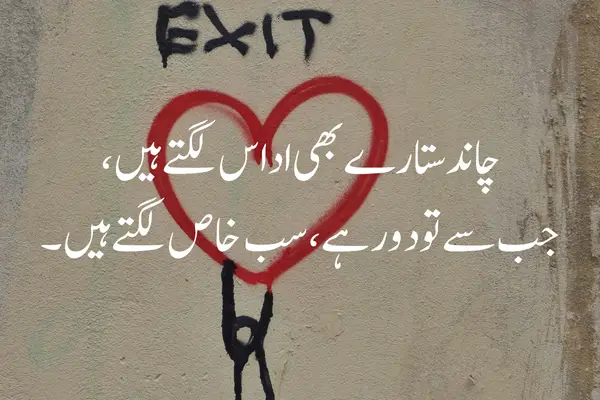 EXIT
چاند ستارے بھی اداس لگتے ہیں،
جب سے تو دور ہے، سب خاص لگتے ہیں۔